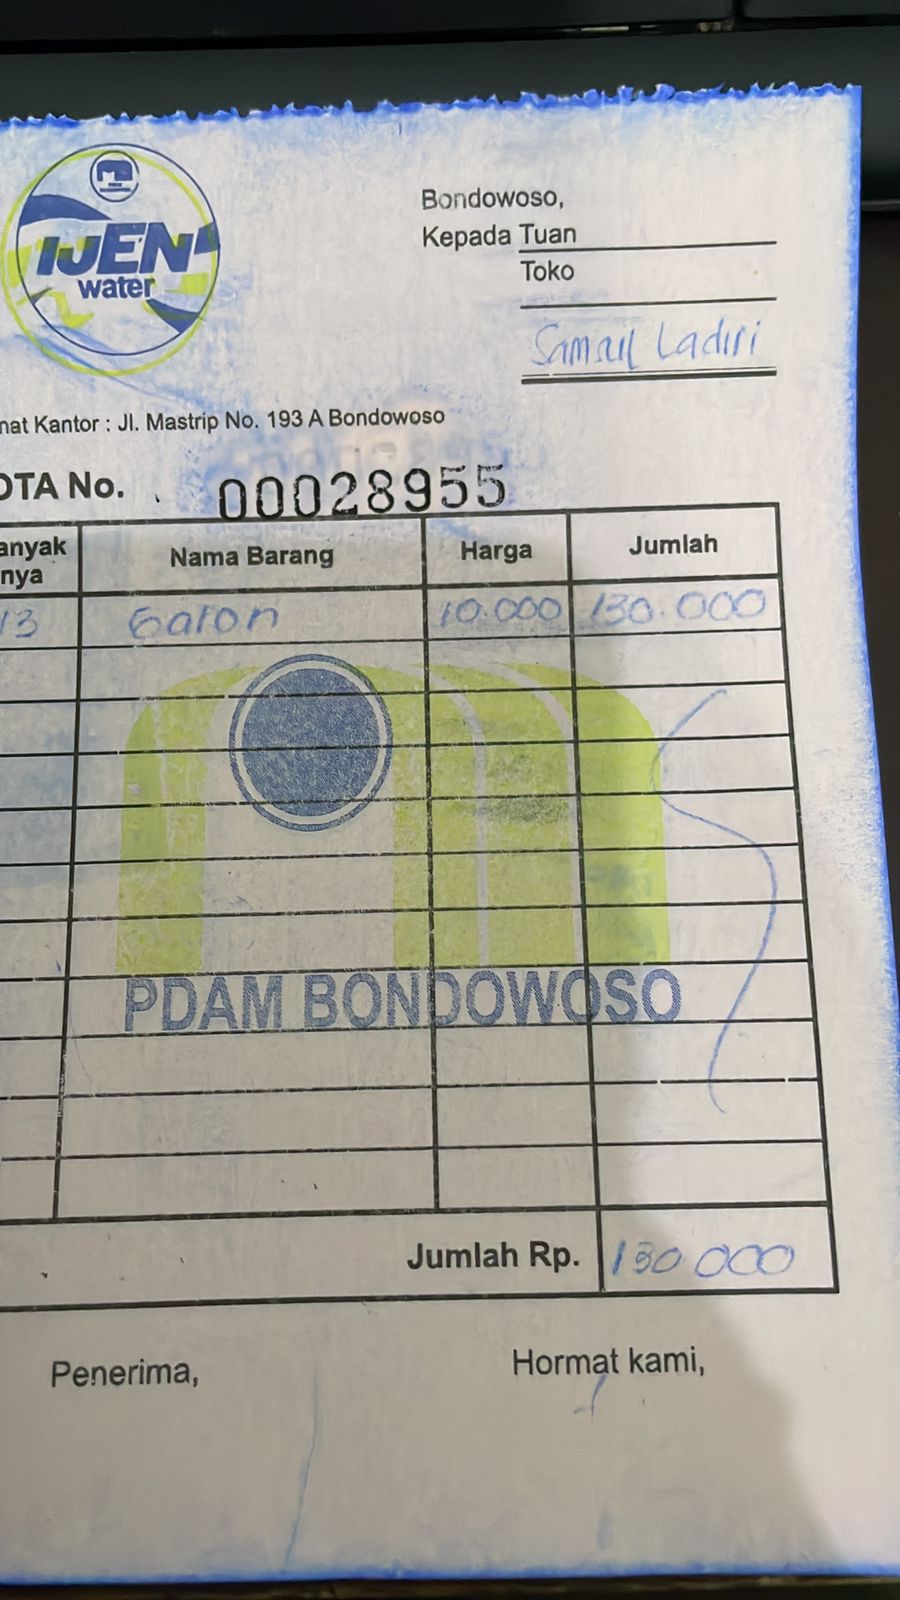 IJEN
water
Bondowoso,
Kepada Tuan
Toko
Samsul Ladiri
mat Kantor : Jl. Mastrip No. 193 A Bondowoso
OTA No. 00028955
anyak
nya
Nama Barang Harga Jumlah
13 Galon 10.000 130.000
PDAM BONDOWOSO
Jumlah Rp. 130.000
Penerima, Hormat kami,